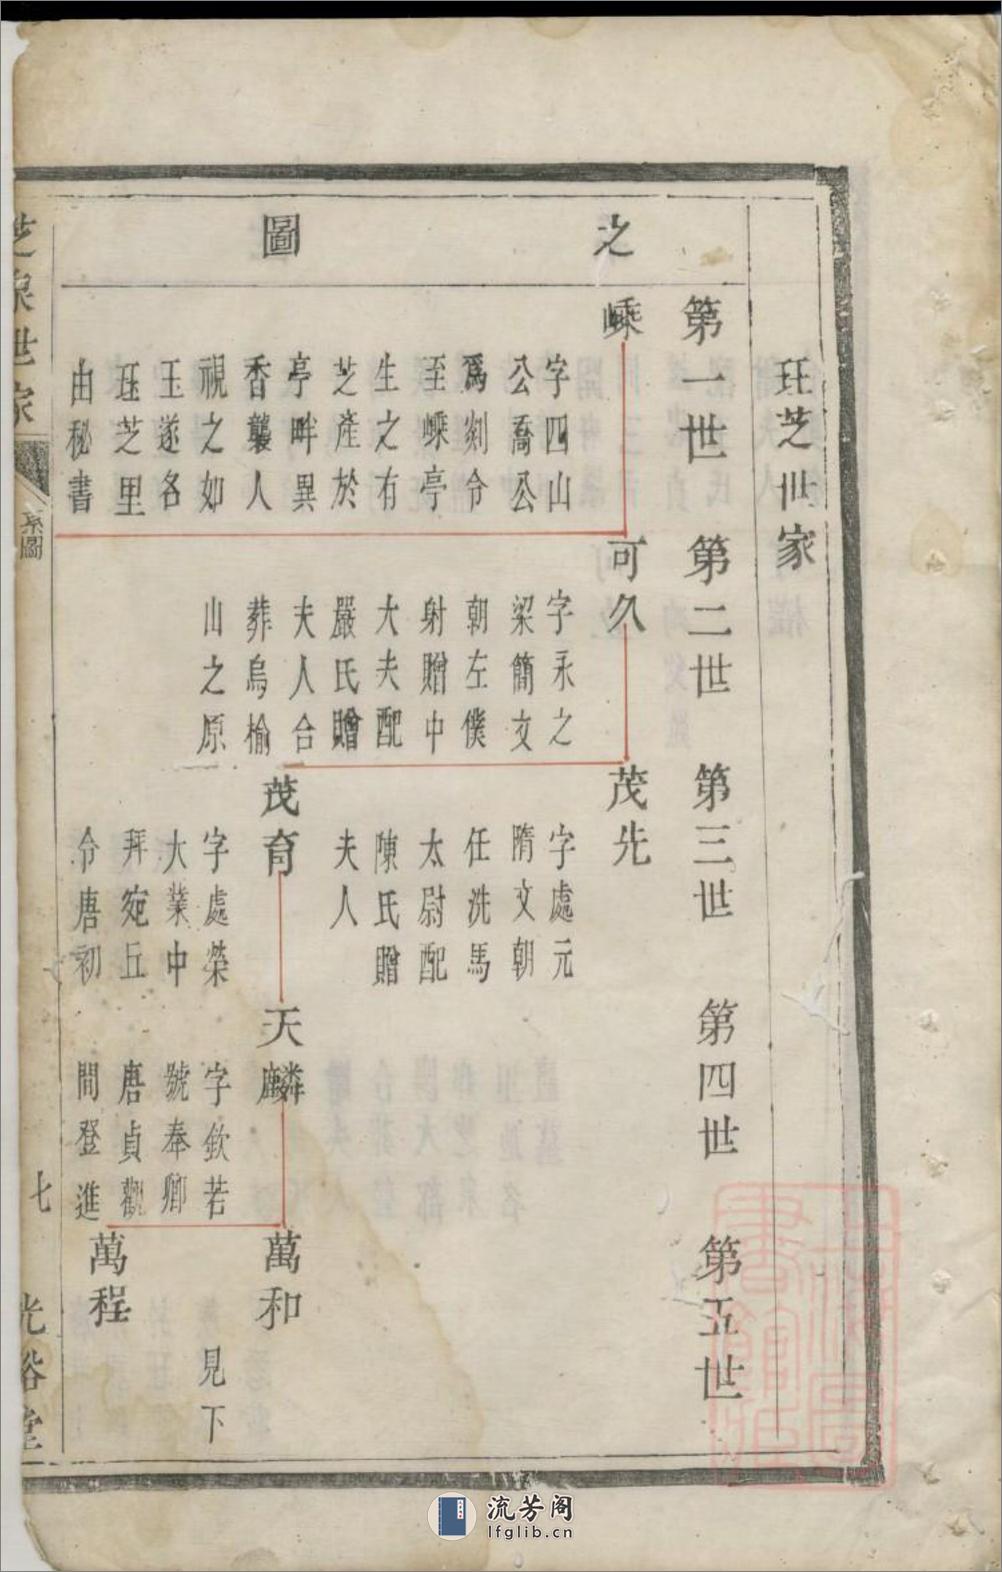 玨芝世家
之
圖
第一世
第二世
第三世
第四世
第五世
嵊
字四山
公喬公
為剡令
至嵊亭
生之有
芝產於
亭畔異
香襲人
視之如
玉遂名
玨芝里
由秘書
可久
字永之
梁簡文
朝左僕
射贈中
大夫配
嚴氏贈
夫人合
葬烏榆
山之原
茂先
字處元
隋文朝
任洗馬
太尉配
陳氏贈
夫人
茂育
字處榮
大業中
拜宛丘
令唐初
天麟
字欽若
號奉卿
唐貞觀
間登進
萬和
見下
萬程
芝泉世家
系圖
七
光裕堂
流芳阁
lfglib.cn